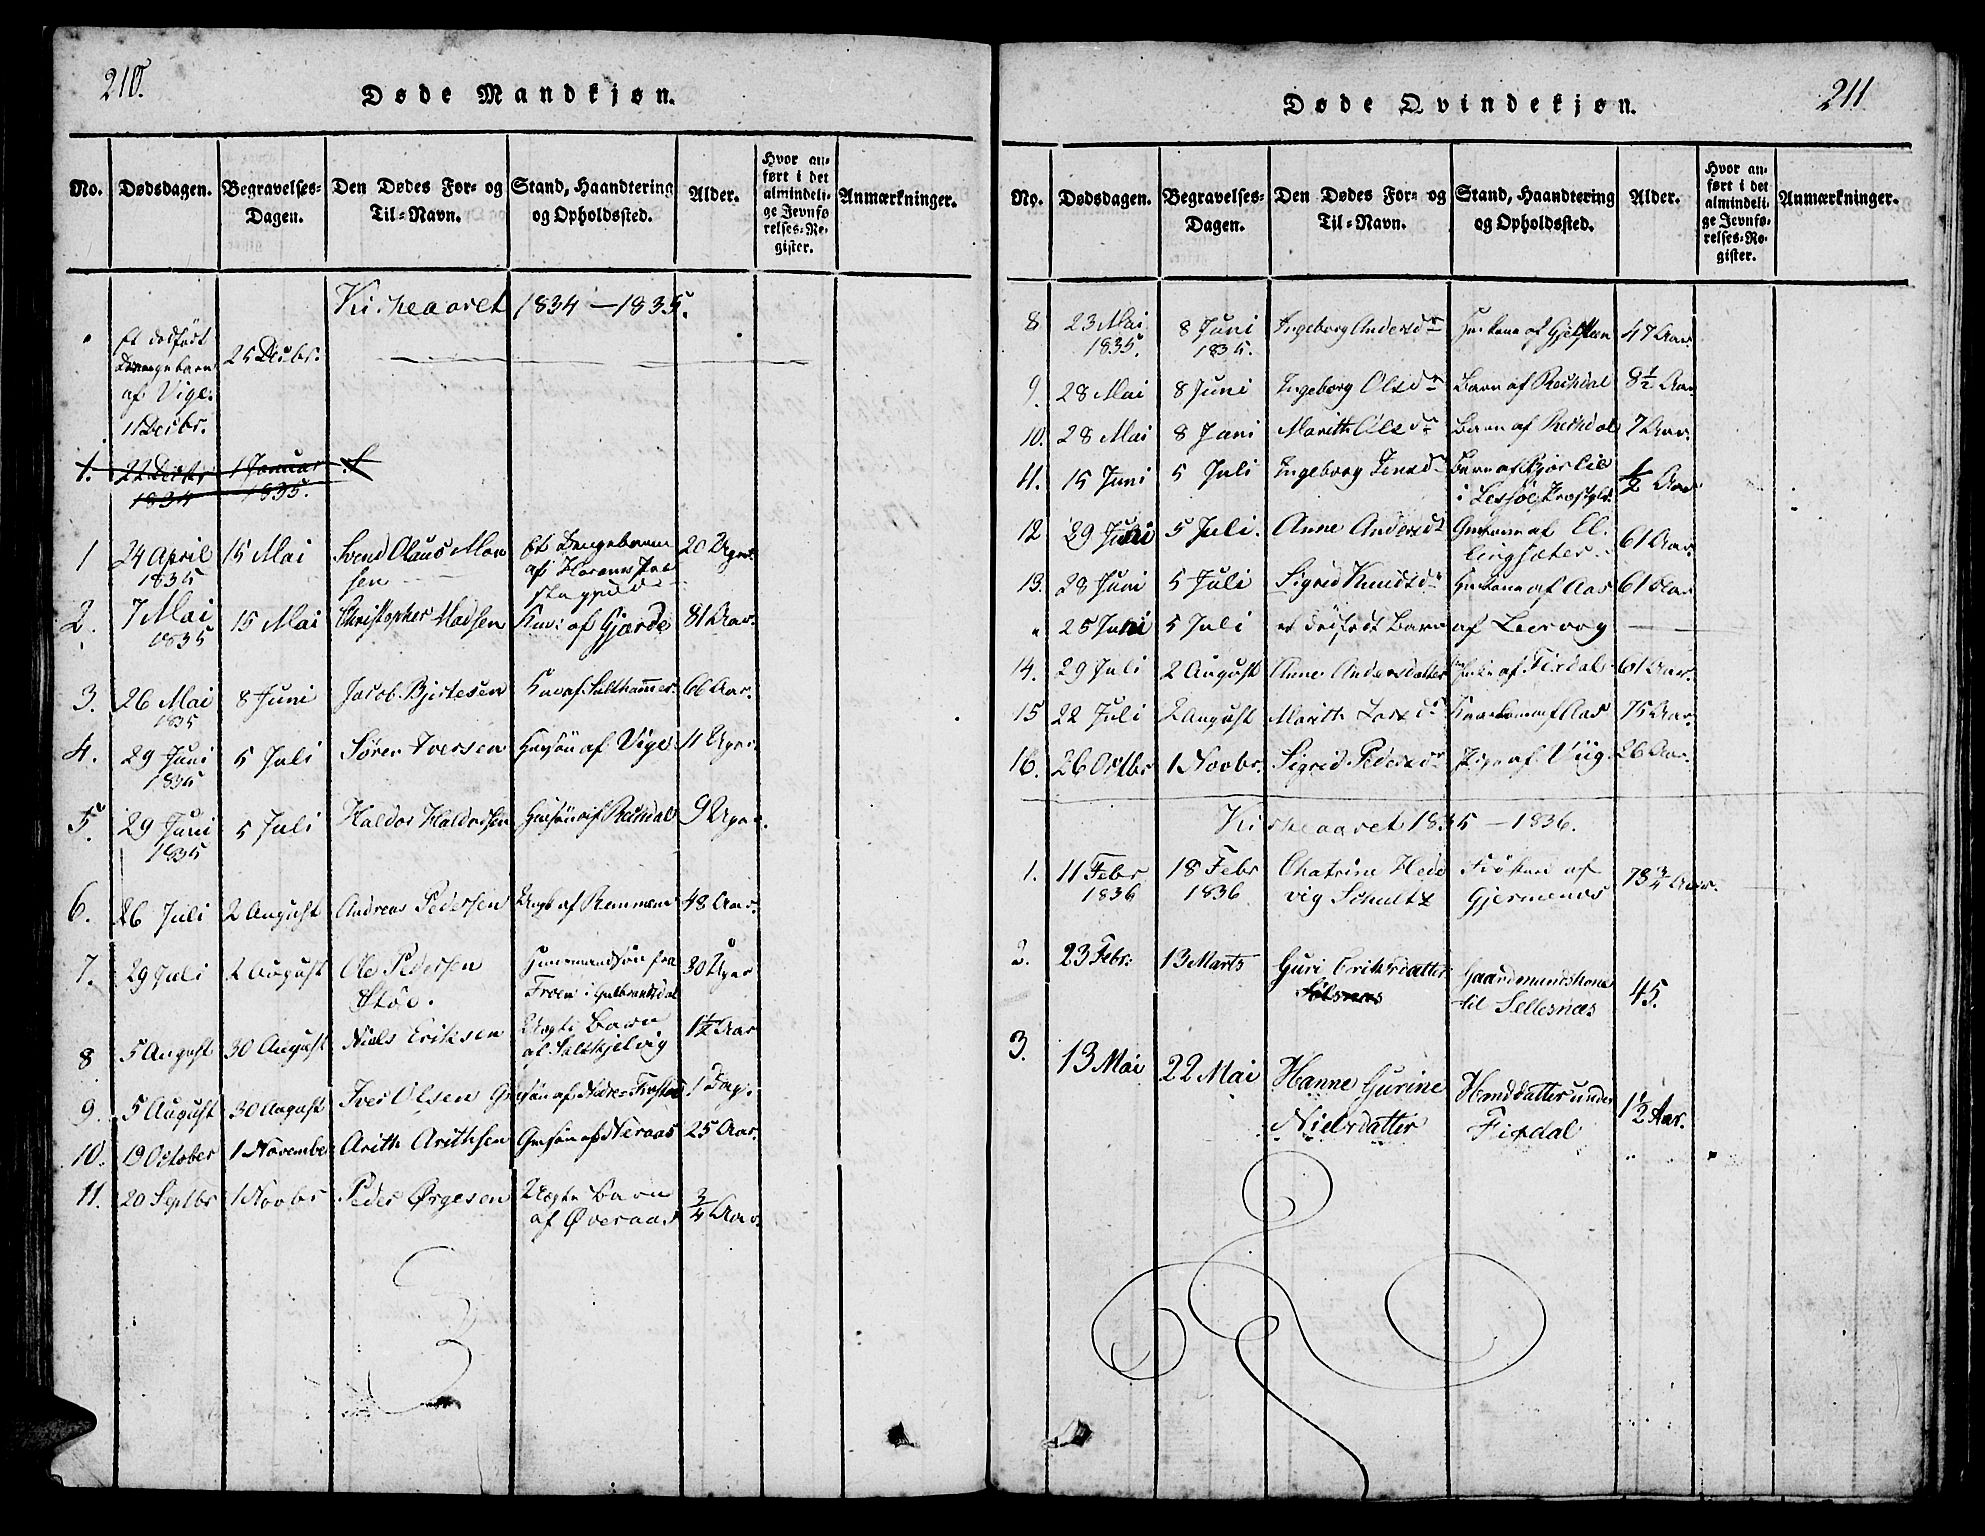 210.
Døde Mandkjøn.
No. Dødsdagen. Begravelses-Dagen. Den Dødes For- og Til-Navn. Stand, Haandtering og Opholdssted. Alder. Hvor anført i det almindelige Jevnførelses-Register. Anmærkninger.
Kirkeaaret 1834 — 1835.
et dødfødt Drengebarn af Vige. 11 Decbr. 25 Decbr.
1. 22 Decbr 1834 1 Januar 1835.
1 24 April 1835 15 Mai Svend Olaus Monsen et Drengebarn af Harams Præstegjeld 20 Uger
2. 7 Mai 1835 15 Mai Christopher Madsen af Gjærde 81 Aar.
3. 26 Mai 1835 8 Juni Jacob Bjertesen af Salthammer 66 Aar.
4. 29 Juni 1835 5 Juli Søren Iversen Grsøn af Vige 11 Uger.
5. 29 Juni 1835 5 Juli Haldor Haldorsen Grsøn af Rekdal 9 Uger.
6. 26 Juli 2 August Andreas Pedersen af Remmem 48 Aar.
7. 29 Juli 2 August Ole Pedersen Støe. Huusmandsøn fra Froen i Gulbrandsdal 30 Uger
8 5 August 30 August Niels Eriksen Uægte Barn af Saltkjelvig 1½ Aar
9. 5 August 30 August Iver Olsen Grsøn af Nedre-Frostad 1 Dag.
10. 19 October 1 November Arith Arithsen Grsøn af Neraas 25 Aar.
11. 20 Septbr 1 Novbr Peder Ørgesen Uægte Barn af Øveraas ¾ Aar.
211
Døde Qvindekjøn.
No. Dødsdagen. Begravelses-Dagen. Den Dødes For- og Til-Navn. Stand, Haandtering og Opholdssted. Alder. Hvor anført i det almindelige Jevnførelses-Register. Anmærkninger.
8 23 Mai 1835. 8 Juni 1835. Ingeborg Andersdr af Gjelsten 47 Aar.
9. 28 Mai 8 Juni Ingeborg Olsdr Barn af Rekdal 8½ Aar
10. 28 Mai 8 Juni Marith Olsdr Barn af Rekdal 7 Aar.
11. 15 Juni 5 Juli Ingeborg Jensdr Barn af Bjørlie i Lessøe Præstgld. ½ Aar
12 29 Juni 5 Juli. Anne Andersdr af Ellingsæter 61 Aar
13. 28 Juni 5 Juli Sigrid Knudsdr af Aas 61 Aar
" 25 Juni 5 Juli et dødfødt Barn af Leervog —
14. 29 Juli 2 August Anne Andersdatter af Fixdal 61 Aar.
15 22 Juli 2 August Marith Larsdr Kaarkone af Aas 75 Aar.
16. 26 Octbr 1 Novbr. Sigrid Pedersdr Pige af Viig. 26 Aar.
Kirkeaaret 1835 — 1836.
1. 11 Febr 1836 18 Febr 1836 Chatrine Hedevig Schultz Frøken af Gjermenæs 73¾ Aar.
2. 23 Febr. 13 Marts Guri Eriksdatter Sølsnæs Gaardmandskone til Sellesnæs 45.
3. 13 Mai 22 Mai Hanne Gurine Nielsdatter Hmdsdatter under Fixdal 1½ Aar.